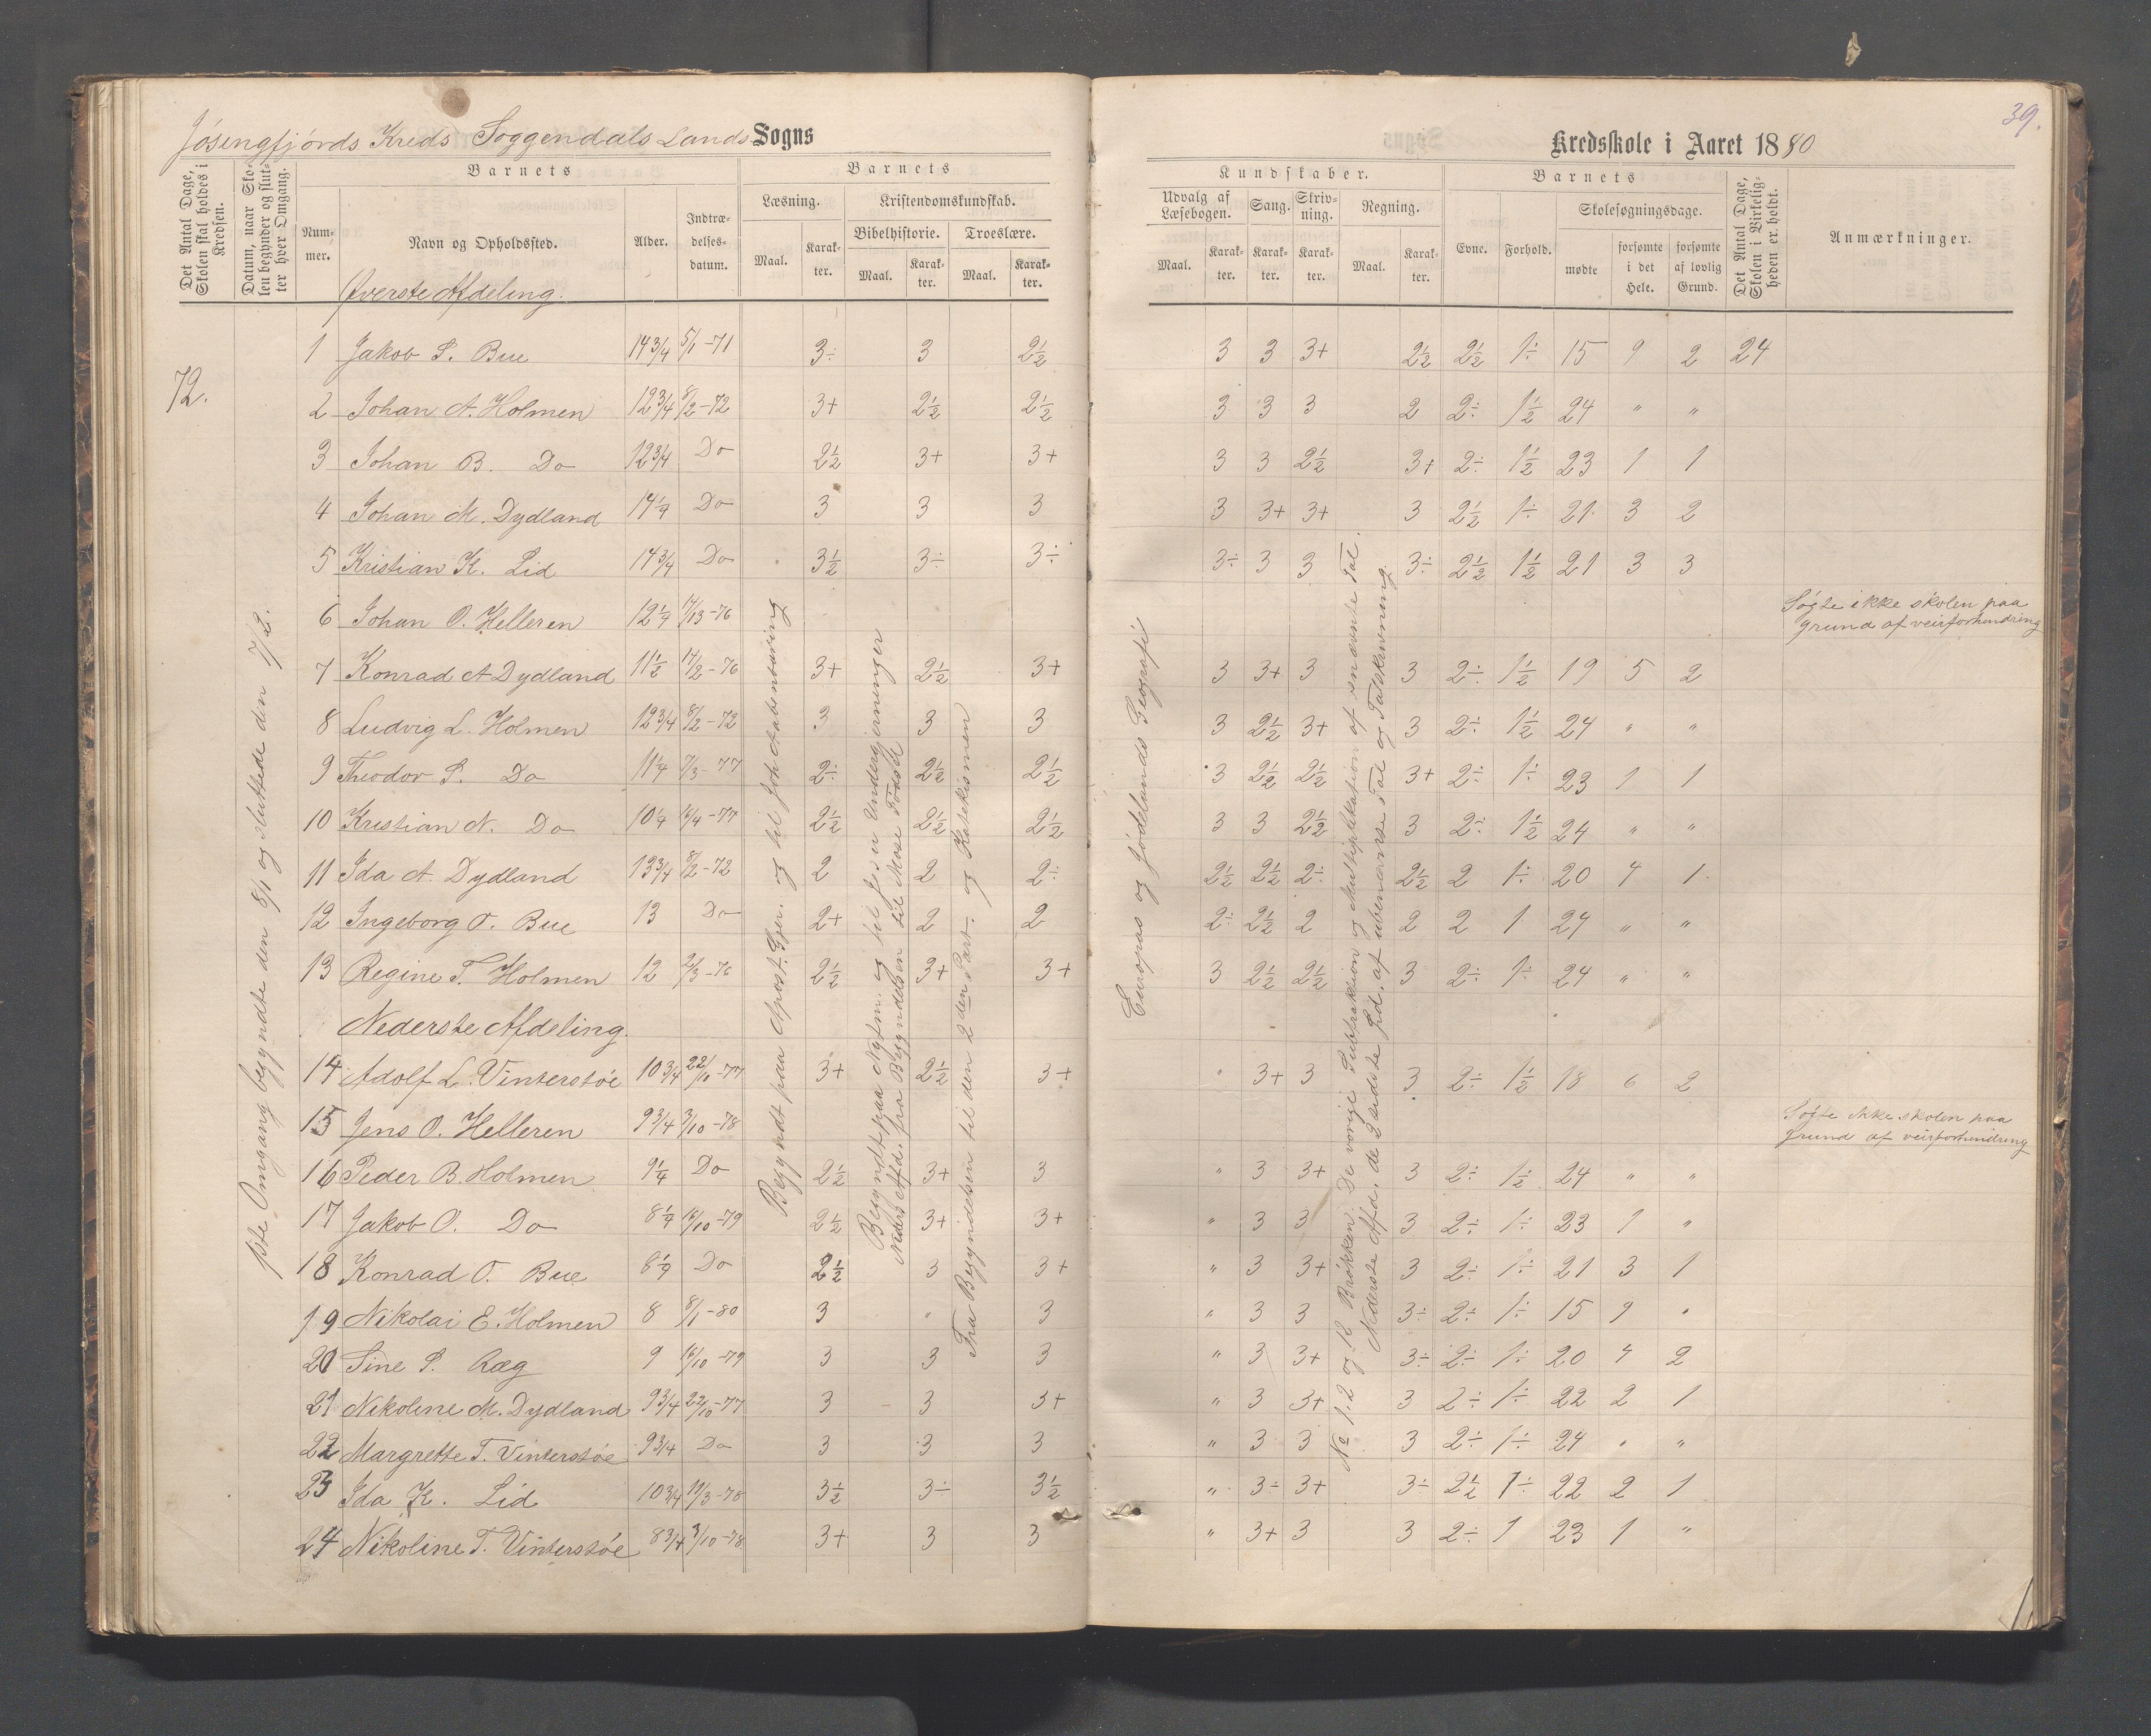 39.
Jøsingfjørds Kreds Soggendals Lands Sogns
Kredsskole i Aaret 1880
Det Antal Dage, Skolen skal holdes i Kredsen.
Datum, naar Skolen begynder og slutter hver Omgang.
Barnets
Nummer.
Navn og Opholdssted.
Alder.
Indtrædelsesdatum.
Barnets
Læsning.
Maal.
Karakter.
Kristendomskundskab.
Bibelhistorie.
Maal.
Karakter.
Troeslære.
Maal.
Karakter.
Kundskaber.
Udvalg af Læsebogen.
Maal.
Karakter.
Sang.
Karakter.
Skrivning.
Karakter.
Regning.
Maal.
Karakter.
Barnets
Evne.
Forhold.
Skolesøgningsdage.
mødte
forsømte i det Hele.
forsømte af lovlig Grund.
Det Antal Dage, Skolen i Virkeligheden er holdt.
Anmærkninger.
Øverste Afdeling.
72.
1ste Omgang begyndte den 8/1 og sluttede den 7/2.
Begyndt paa Apost. Gjer. og til Joh. daabsbæring
Begyndt paa og til Jesu Undergjerninger
Neders Afd. fra Begyndelsen til Mose Fødsel
Fra Begyndelsen til den 2den Part. og Katekismen
Europas og Jødelands Geografi
No 1, 2 og 12 Brøkken. De øvrige Subtraktion og Multiplikation af benævnte Tal.
Nederste Afd. de 2 sidste Hd. af ubenævnte Tal og Talskrivning.
1 Jakob S. Bue 14 3/4 5/1-71 3÷ 3 2½ 3 3 3+ 2½ 2½ 1÷ 15 9 2 24
2 Johan A. Holmen 12 3/4 8/2-72 3+ 2½ 2½ 3 3 3 2 2÷ 1½ 24 " "
3 Johan B. Do 12 3/4 Do 2½ 3+ 3+ 3 3 2½ 3+ 2÷ 1½ 23 1 1
4 Johan M. Dydland 14¼ Do 3 3 3 3 3+ 3+ 3 2½ 1÷ 21 3 2
5 Kristian K. Lid 14 3/4 Do 3½ 3÷ 3÷ 3÷ 3 3 3÷ 2½ 1½ 21 3 3
6 Johan O. Helleren 12¼ 17/13-76 Søgte ikke skolen paa
grund af veirforhindring
7 Konrad A Dydland 11½ 14/2-76 3+ 2½ 3+ 3 3+ 3 3 2÷ 1½ 19 5 2
8 Ludvig L. Holmen 12 3/4 8/2-72 3 3 3 3 2½ 3+ 3 2÷ 1½ 24 " "
9 Theodor S. Do 11¼ 7/3-77 2÷ 2½ 2½ 3 2½ 2½ 3+ 2÷ 1÷ 23 1 1
10 Kristian N. Do 10¼ 16/4-77 2½ 2½ 2½ 3 3 2½ 3 2÷ 1½ 24 " "
11 Ida A. Dydland 13 3/4 8/2-72 2 2 2÷ 2½ 2½ 2÷ 2½ 2 1÷ 20 4 1
12 Ingeborg O. Bue 13 Do 2+ 2 2 2÷ 2½ 2 2 2 1 24 " "
13 Regine T. Holmen 12 2/3-76 2½ 3+ 3+ 3 2½ 2½ 3 2÷ 1÷ 24 " "
Nederste Afdeling.
14 Adolf L. Vinterstøe 10 3/4 22/10-77 3+ 2½ 3+ " 3+ 3 3 2÷ 1½ 18 6 2
15 Jens O. Helleren 9 3/4 3/10-78 Søgte ikke skolen paa
grund af veirforhindring
16 Peder B. Holmen 9¼ Do 2½ 3+ 3 " 3 3+ 3 2÷ 1½ 24 " "
17 Jakob O. Do 8¼ 16/10-79 2½ 3+ 3+ " 3 3 3 2÷ 1÷ 23 1 "
18 Konrad O. Bue Do 2½ 3 3+ " 3 3+ 3 2÷ 1÷ 21 3 1
19 Nikolai E. Holmen 8 8/1-80 3 " 3 " 3 3 3÷ 2÷ 1÷ 15 9 "
20 Sine S. Ræg 9 16/10-79 3 3 3 " 3 3+ 3÷ 2÷ 1÷ 20 4 2
21 Nikoline M. Dydland 9 3/4 22/10-77 3 3 3+ " 3 3+ 3 2÷ 1÷ 22 2 1
22 Margrette T. Vinterstøe 9 3/4 Do 3 3 3 " 3 3 3 2÷ 1÷ 24 " "
23 Ida K. Lid 10 3/4 19/3-78 3½ 3÷ 3½ " 3÷ 3+ 3÷ 2½ 1÷ 22 2 1
24 Nikoline T. Vinterstøe 8 3/4 3/10-78 3+ 3 3 " 3+ 3 3 2÷ 1 23 1 "